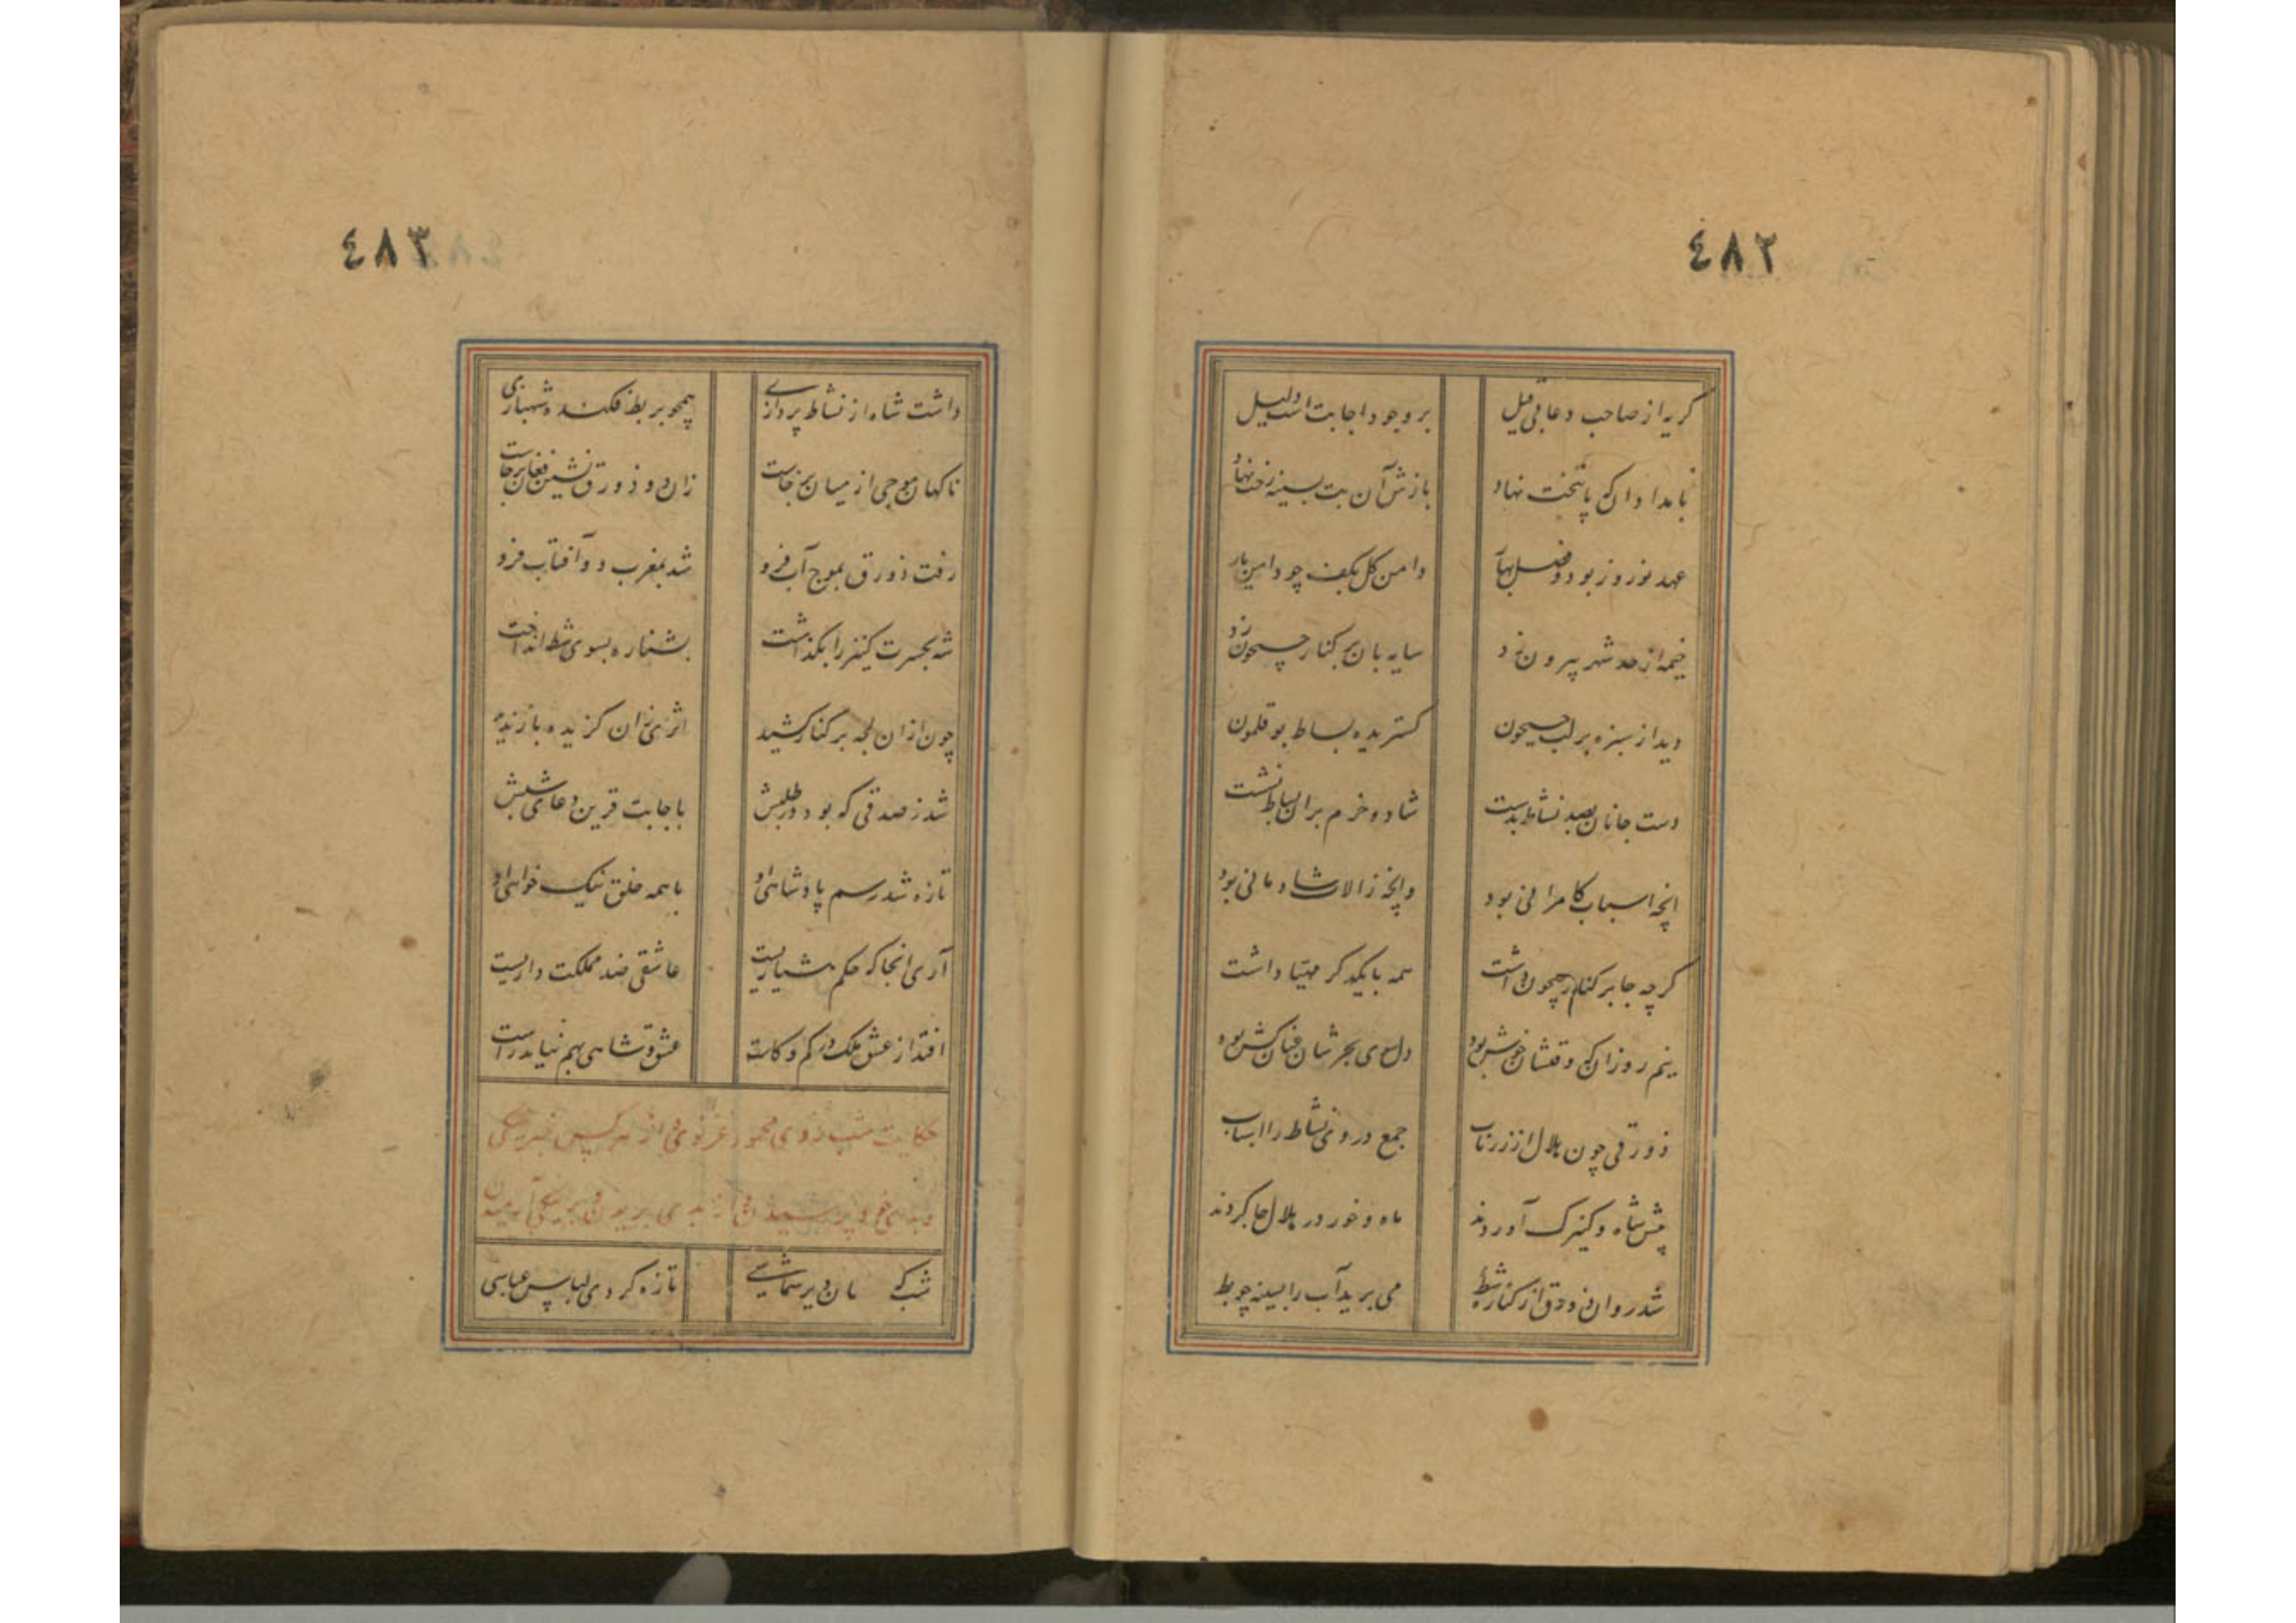 ٤٨٢
گریه از صاحب دعا بی قیل
بر وجود اجابت است دلیل
بامدادان که پا بتخت نهاد
بازش آن بت بسینه رخت نهاد
عهد نوروز بود و فصل بهار
دامن گل بکف چو دامن یار
خیمه از حد شهر بیرون زد
سایه بان بر کنار جیحون زد
دید از سبزه بر لب جیحون
گستریده بساط بوقلمون
دست جانان بصد نشاط بدست
شاد و خرم بران بساط نشست
انچه اسباب کامرانی بود
وانچه ز الات شادمانی بود
گرچه جا بر کنار جیحون داشت
همه با یکدگر مهیا داشت
نیم روزان که وقتشان خوش بود
دل سوی بحرشان عنان کش بود
زورقی چون هلال از زر ناب
جمع در وی نشاط را اسباب
پیش شاه و کنیزک آوردند
ماه و خور در هلال جا کردند
شد روان زورق از کناره شط
می برید آب را بسینه چو بط
٤٨٣
داشت شاه از نشاط پردازی
همچو بر بط فکنده شهبازی
ناگهان موجی از میان برخاست
زان دو زورق نشین فغان برخاست
رفت زورق بموج آب فرو
شد بمغرب دو آفتاب فرو
شه بحسرت کنیز را بگذاشت
بشناره بسوی شط انداخت
چون ازان لجه بر کنار کشید
اثری زان گزیده باز ندید
شد ز صدقی که بود در طلبش
با اجابت قرین دعای شبش
تازه شد رسم پادشاهی او
با همه خلق نیک خواهی او
آری انجا که حکم هشیاریست
عاشقی ضد مملکت داریست
افتد از عشق ملک در کم و کاست
عشق و شاهی بهم نیاید راست
حکایت شب روی محمود غزنوی از همه کس
شب که مان
تازه کردی لباس عباسی